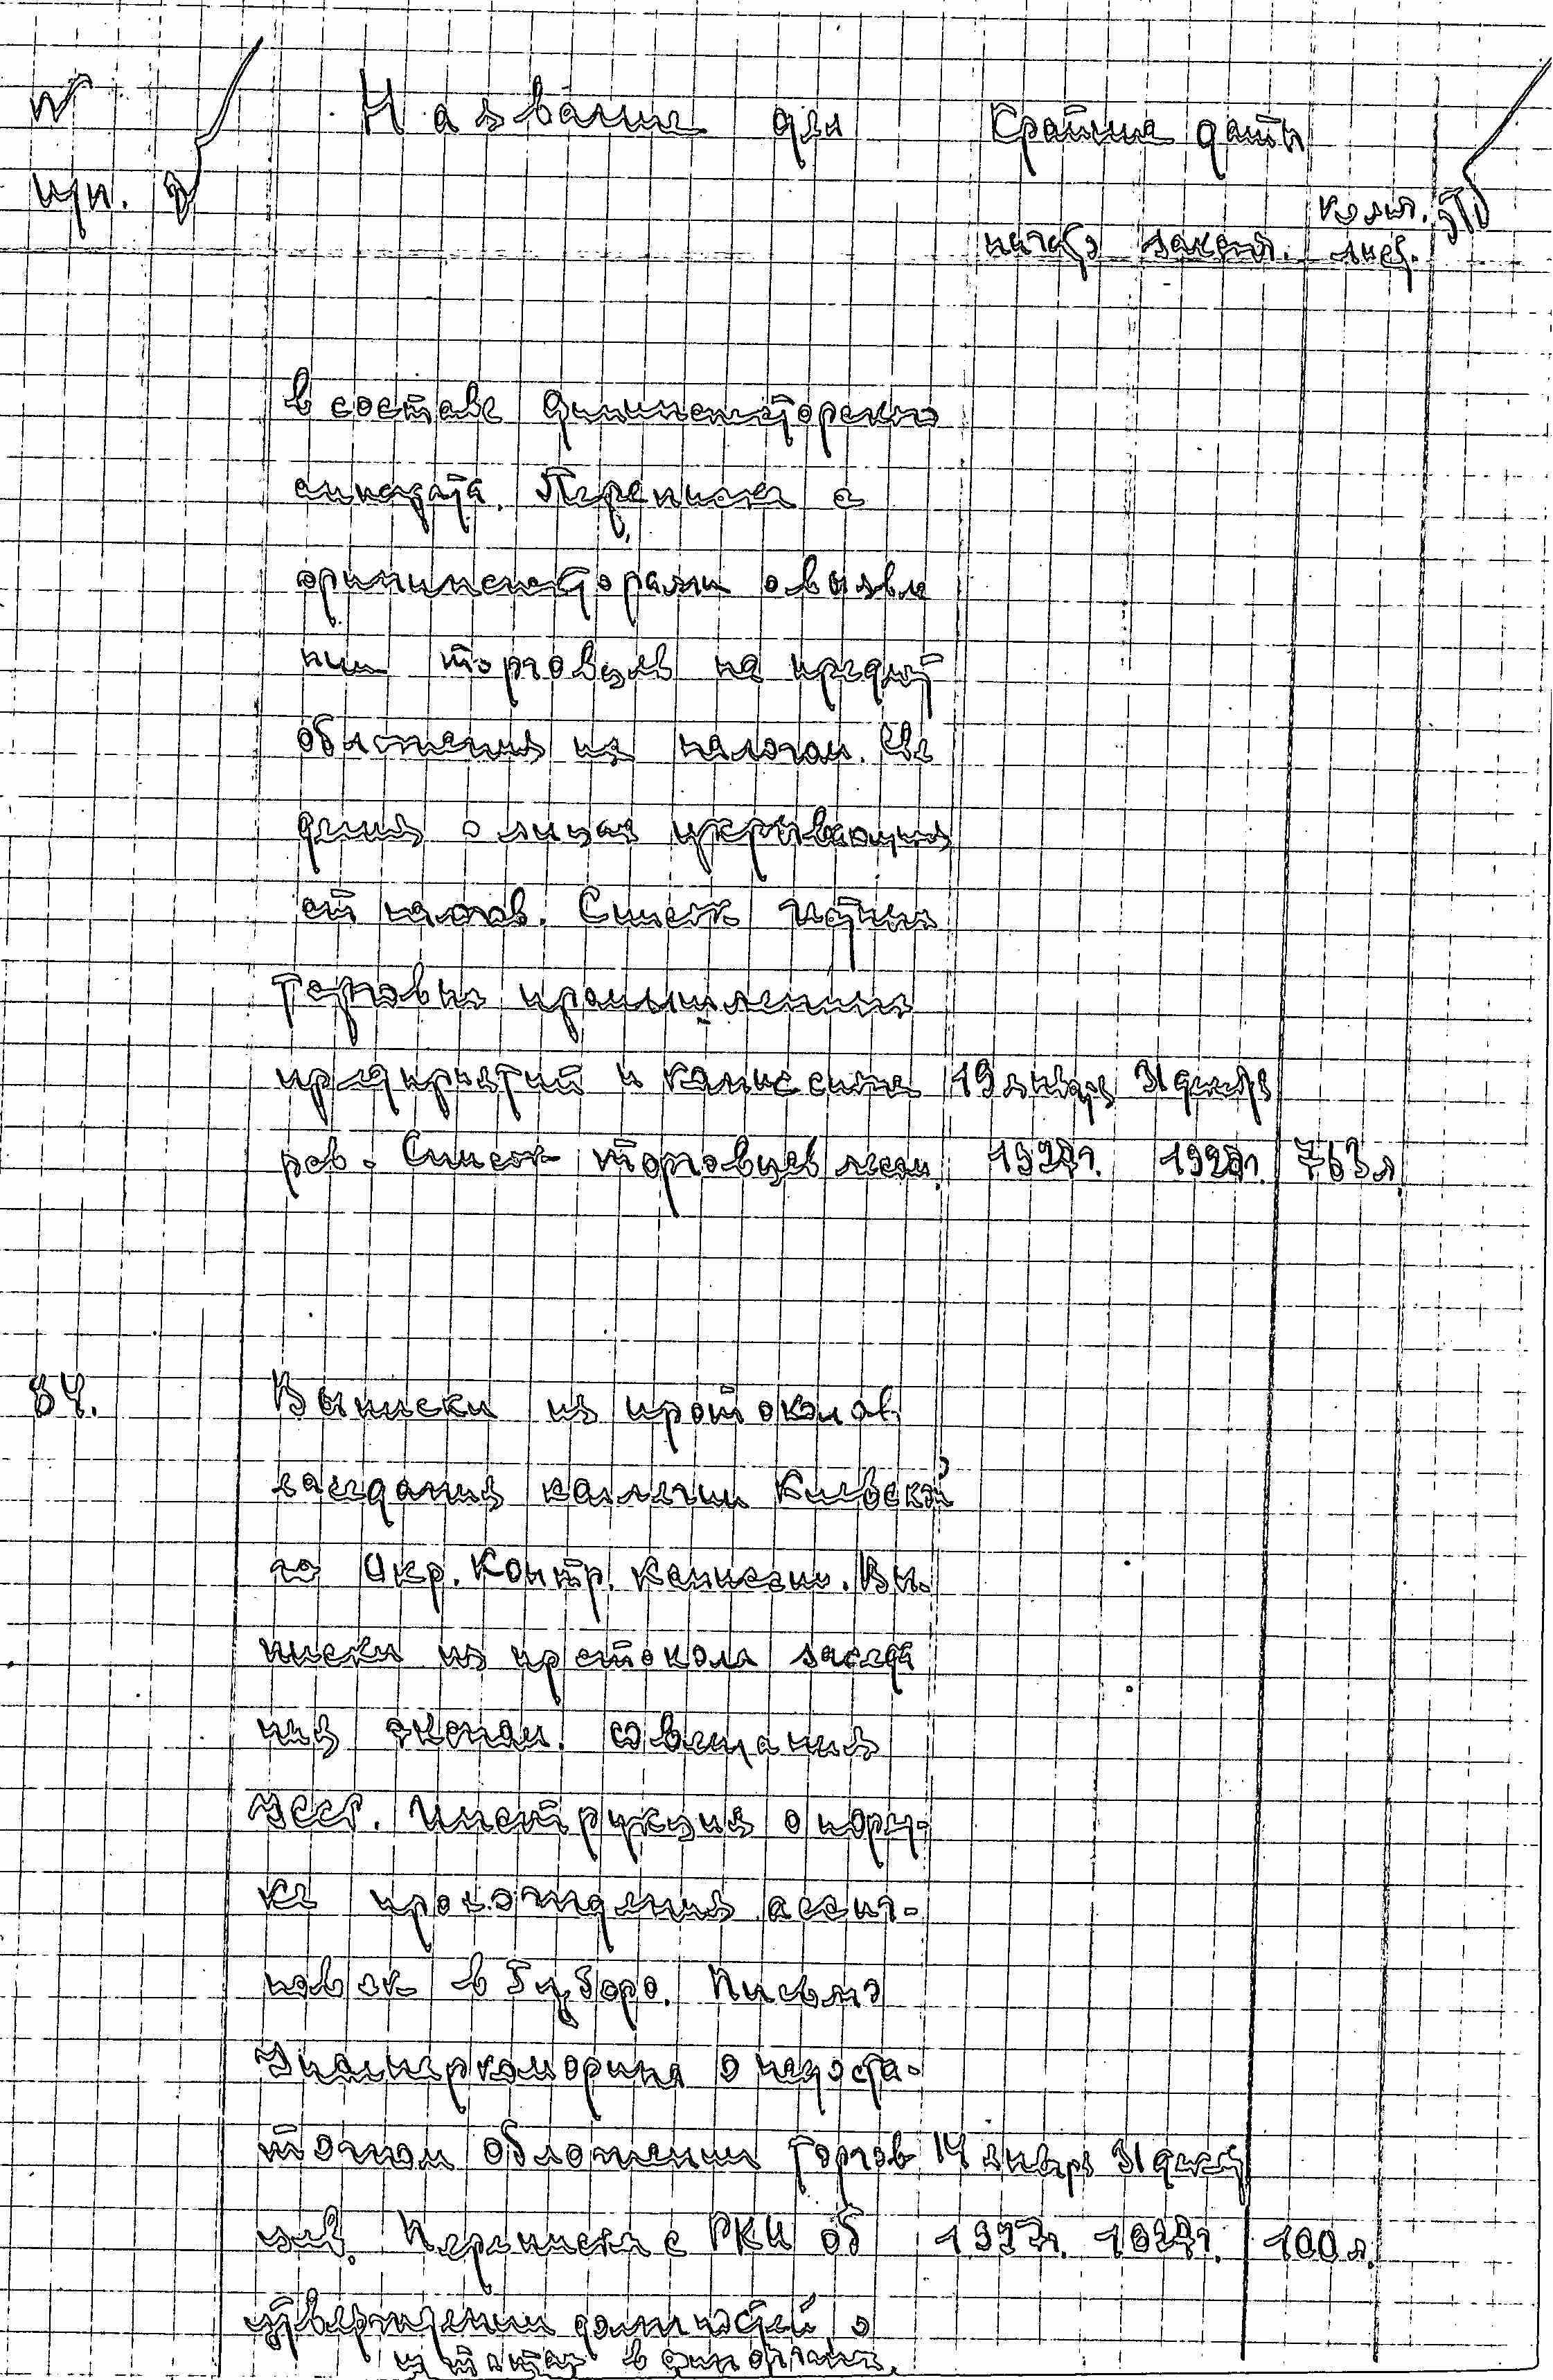 № Название дел Крайние даты
колич.
начало законч. лис.
в составе фининспекторского
аппарата. Переписка с
фининспекторами о выявле
нии торговцев на предмет
обложения их налогом. Све
дения о лицах укрывающихся
от налогов. Список частных
торгово промышленных
предприятий и комиссионе 19 января 31 декабр
ров. Список торговцев лесом. 1927г. 1927г. 763 л.
84. Выписки из протоколов
заседания коллегии Киевско
го Окр. Контр. Комиссии. Вы-
писки из протокола заседа
ния эконом. совещания
УССР. Инструкция о поряд-
ке прохождения ассиг-
новок в Губфо. Письмо
Уполнаркомфина о недоста-
точном обложении торгов 14 январ 31 дека
цев. Переписка с РКИ об 1927г. 1927г. 100 л.
утверждении должностей о
штатах в финорганах.